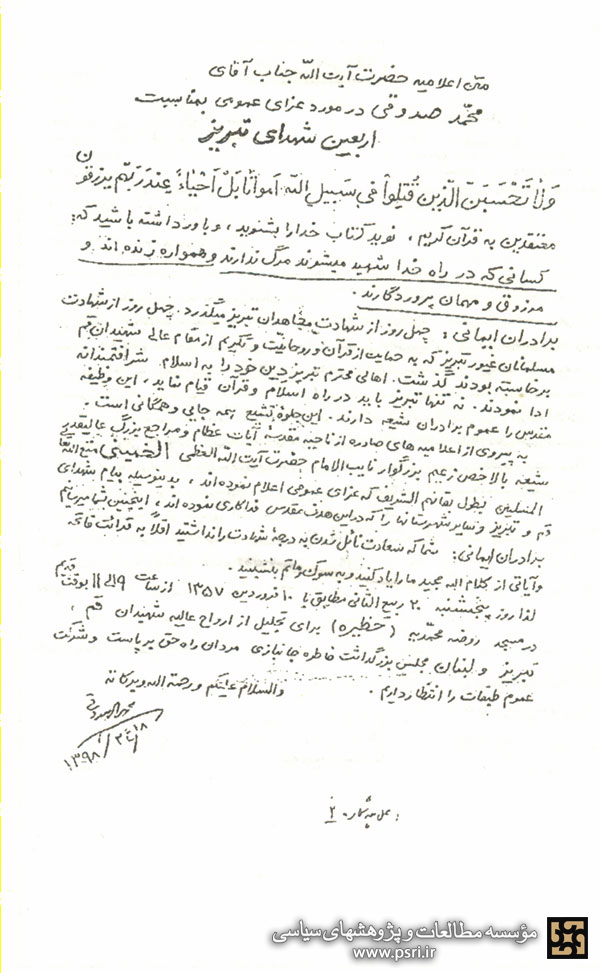 متن اعلامیه حضرت آیت الله جناب آقای
محمّد صدوقی در مورد عزای عمومی بمناسبت
اربعین شهدای تبریز
وَلا تَحْسَبَنَّ الَّذینَ قُتِلُوا فی سَبیلِ اللهِ اَمواتاً بَلْ اَحْیاءٌ عِندَ رَبِّهِم یرزقون
معتقدین به قرآن کریم، نوید کتاب خدا را بشنوید، و باور داشته باشید که:
کسانی که در راه خدا شهید میشوند مرگ ندارند و همواره زنده اند و
مرزوق و مهمان پروردگارند.
برادران ایمانی: چهل روز از شهادت مجاهدان تبریز میگذرد. چهل روز از شهادت
مسلمانان غیور تبریز که به حمایت از قرآن و روحانیّت و تکریم از مقام عالی شهیدان قم
برخاسته بودند گذشت. اهالی محترم تبریز دین خود را به اسلام شرافتمندانه
ادا نمودند. نه تنها تبریز باید در راه اسلام و قرآن قیام نماید، این وظیفه
مقدس را عموم برادران شیعه دارند. این جلوهٔ تشیع همه جایی و همگانی است.
به پیروی از اعلامیه های صادره از ناحیه مقدسهٔ آیات عظام و مراجع بزرگ عالیقدر
شیعه بالاخص زعیم بزرگوار نایب الامام حضرت آیت الله العظمی الخمینی متع الله
المسلمین بطول بقائهم الشریف که عزای عمومی اعلام نموده اند، بدینوسیله پیام شهدای
قم و تبریز و سایر شهرستانها را که در این هدف مقدس فداکاری نموده اند، اینچنین بشما میرسانم
برادران ایمانی: شما که سعادت نائل شدن به درجهٔ شهادت را نداشتید اقلاً به قرائت فاتحه
و آیاتی از کلام اله مجید ما را یاد کنید و به سوک و ماتم بنشینید.
لذا روز پنجشنبه ۲۰ ربیع الثانی مطابق با ۱۰ فروردین ۱۳۵۷ از ساعت ۹ الی ۱۱ بوقت قدیم
در مسجد روضه محمّدیه (حظیره) برای تجلیل از ارواح عالیه شهیدان قم،
تبریز و لبنان مجلس بزرگداشت خاطره جانبازی مردان راه حق برپاست و شرکت
عموم طبقات را انتظار داریم. والسلام علیکم و رحمة اله و برکاته
۱۸/ع۲/۱۳۹۸
مؤسسه مطالعات و پژوهشهای سیاسی
www.psri.ir